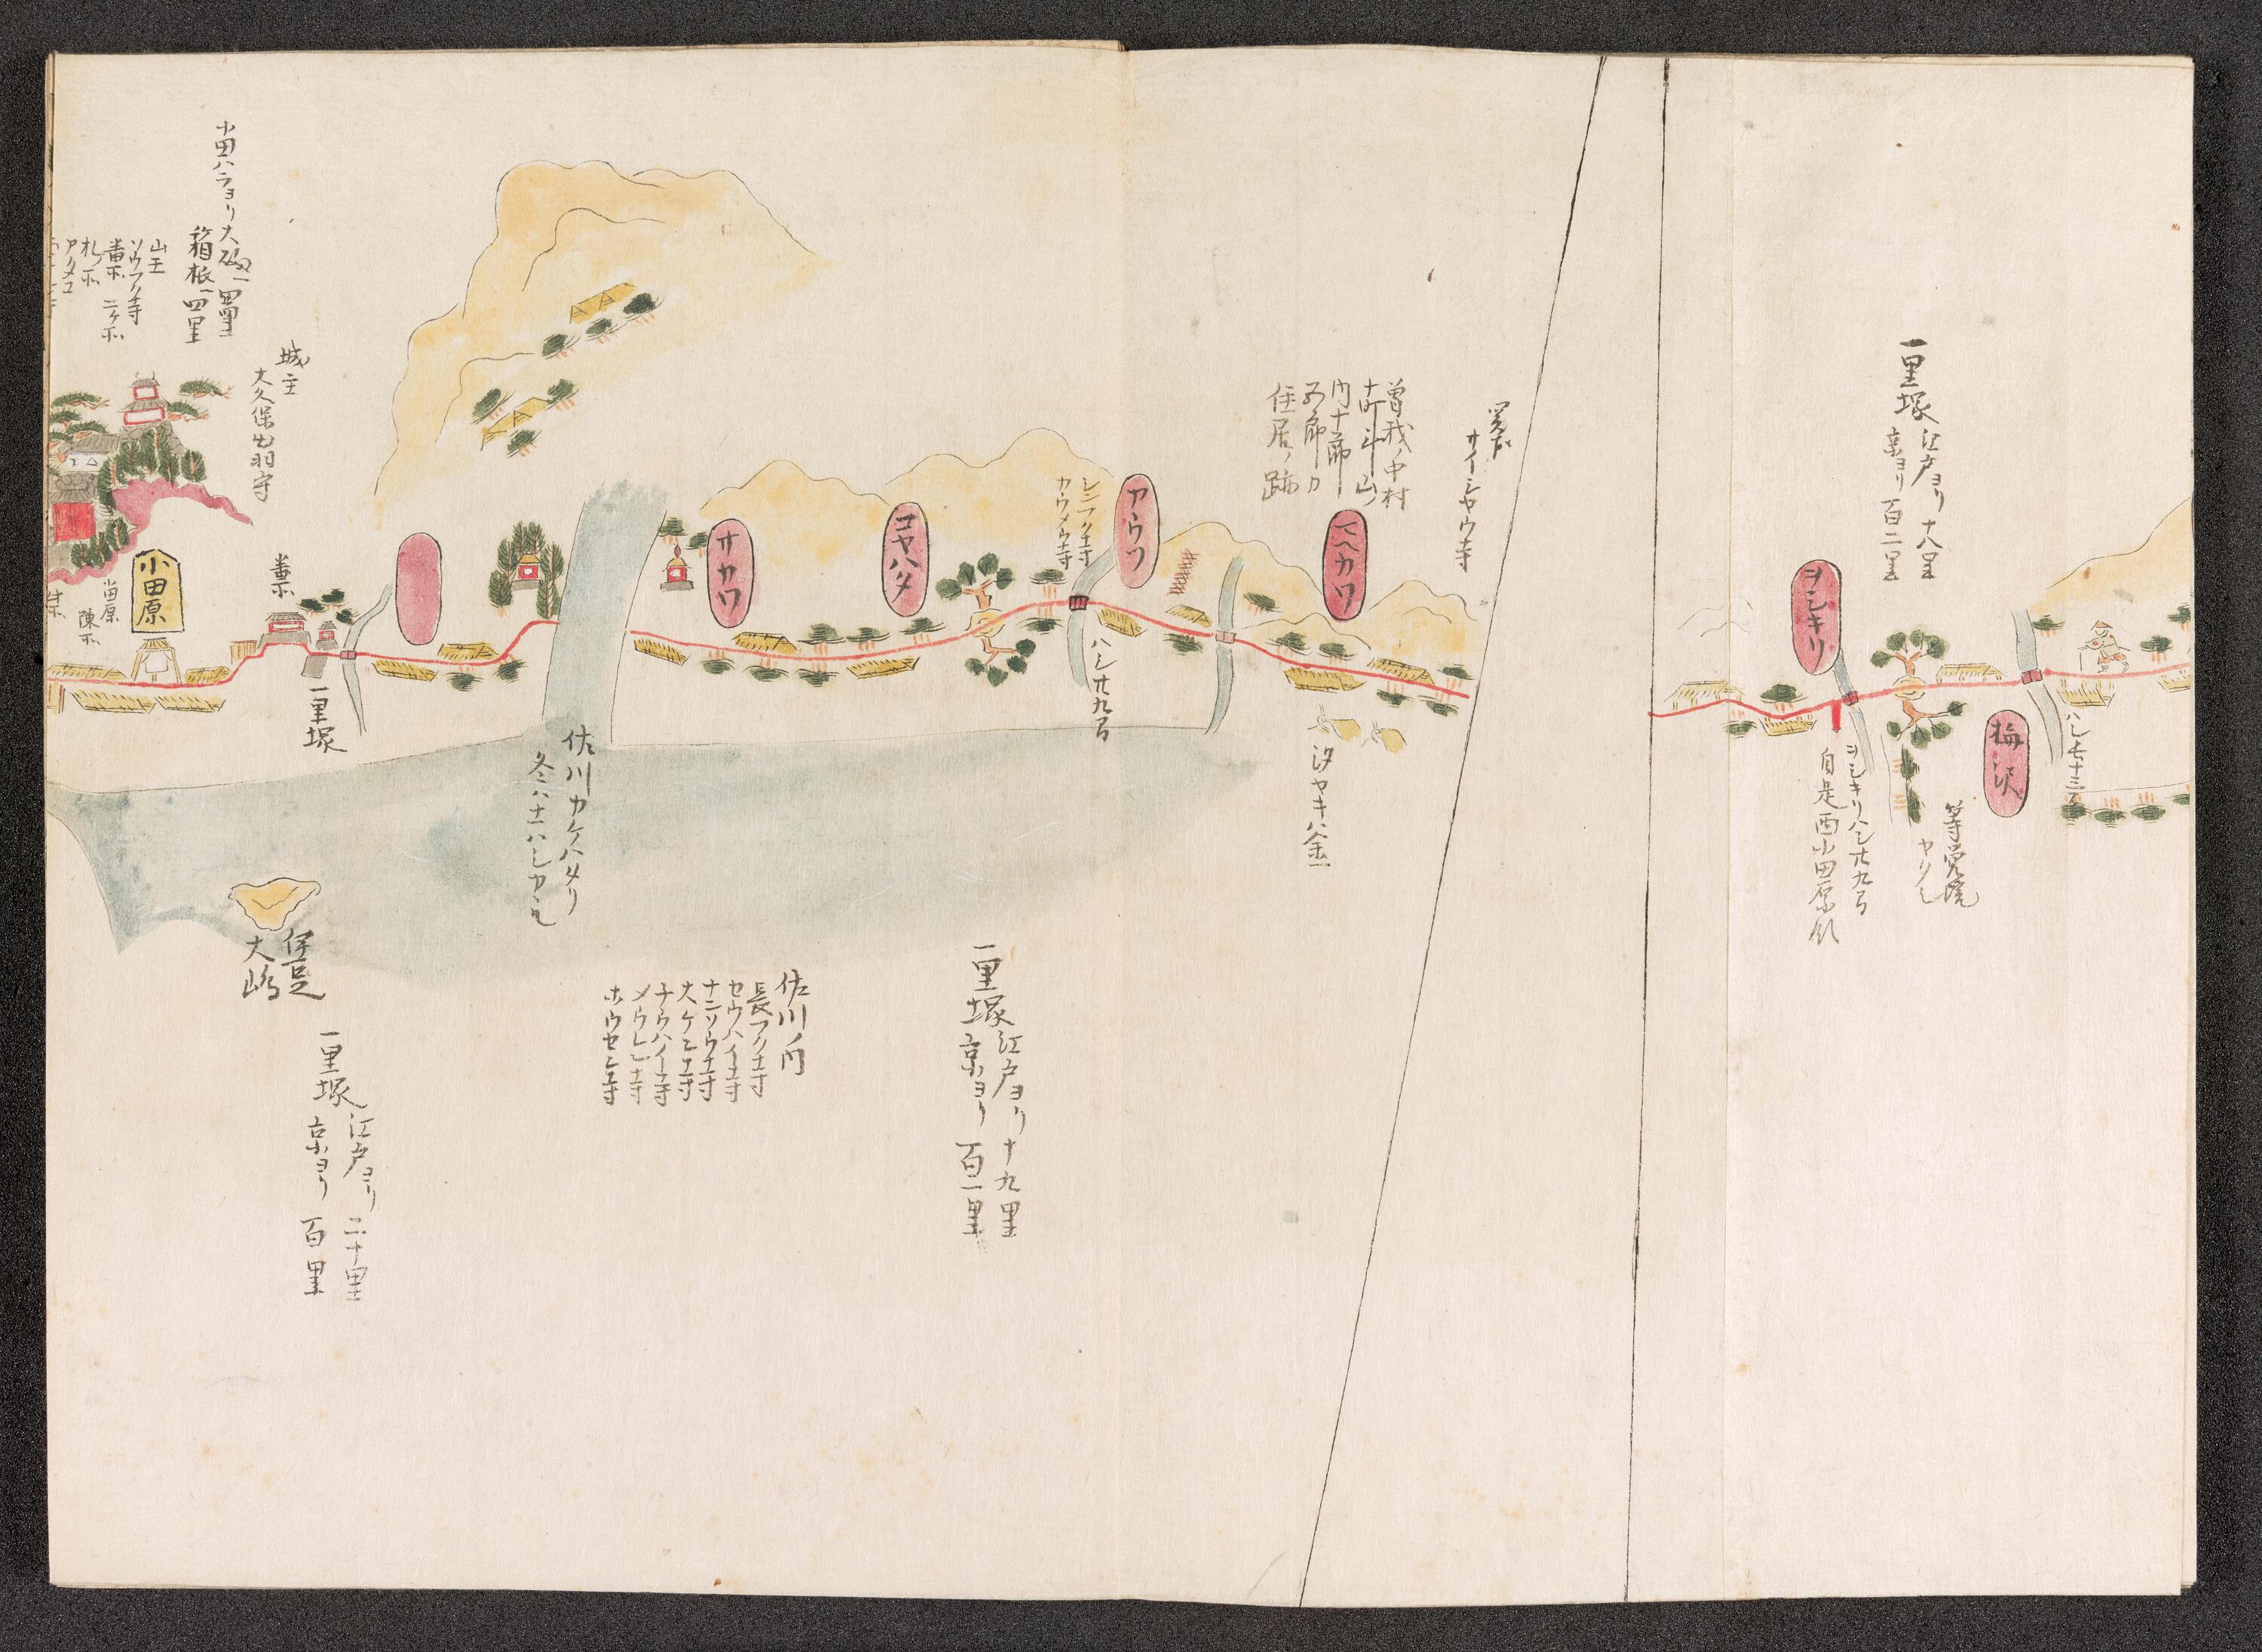 一里塚
江戸ヨリ十八里
京ヨリ百二里
ハシ七十三間
梅沢
等覚院
ヲシキリ
ヲシキリハシ廿九間
自是西小田原領
サイシヤウ寺
曽我ノ中村
十町斗山ノ
内十郎
五郎カ
住居ノ跡
マヘカワ
汐ヤキハ釜
カウツ
シンフク寺
ハシ廿九間
一里塚
江戸ヨリ十九里
京ヨリ百一里
コヤハタ
サカワ
佐川ノ内
長フク寺
セウハイ寺
ナニソウ寺
大ケン寺
チウハイ寺
メウレン寺
ホウセン寺
佐川カケハタリ
冬ハ土ハシカヽル
伊豆
大嶋
一里塚
一里塚
江戸ヨリ二十里
京ヨリ百里
番所
城主
大久保出羽守
小田ハラヨリ大磯ヘ四里
箱根ヘ四里
小田原
山王
ソウフク寺
番所 二ケ所
札所
アタコ